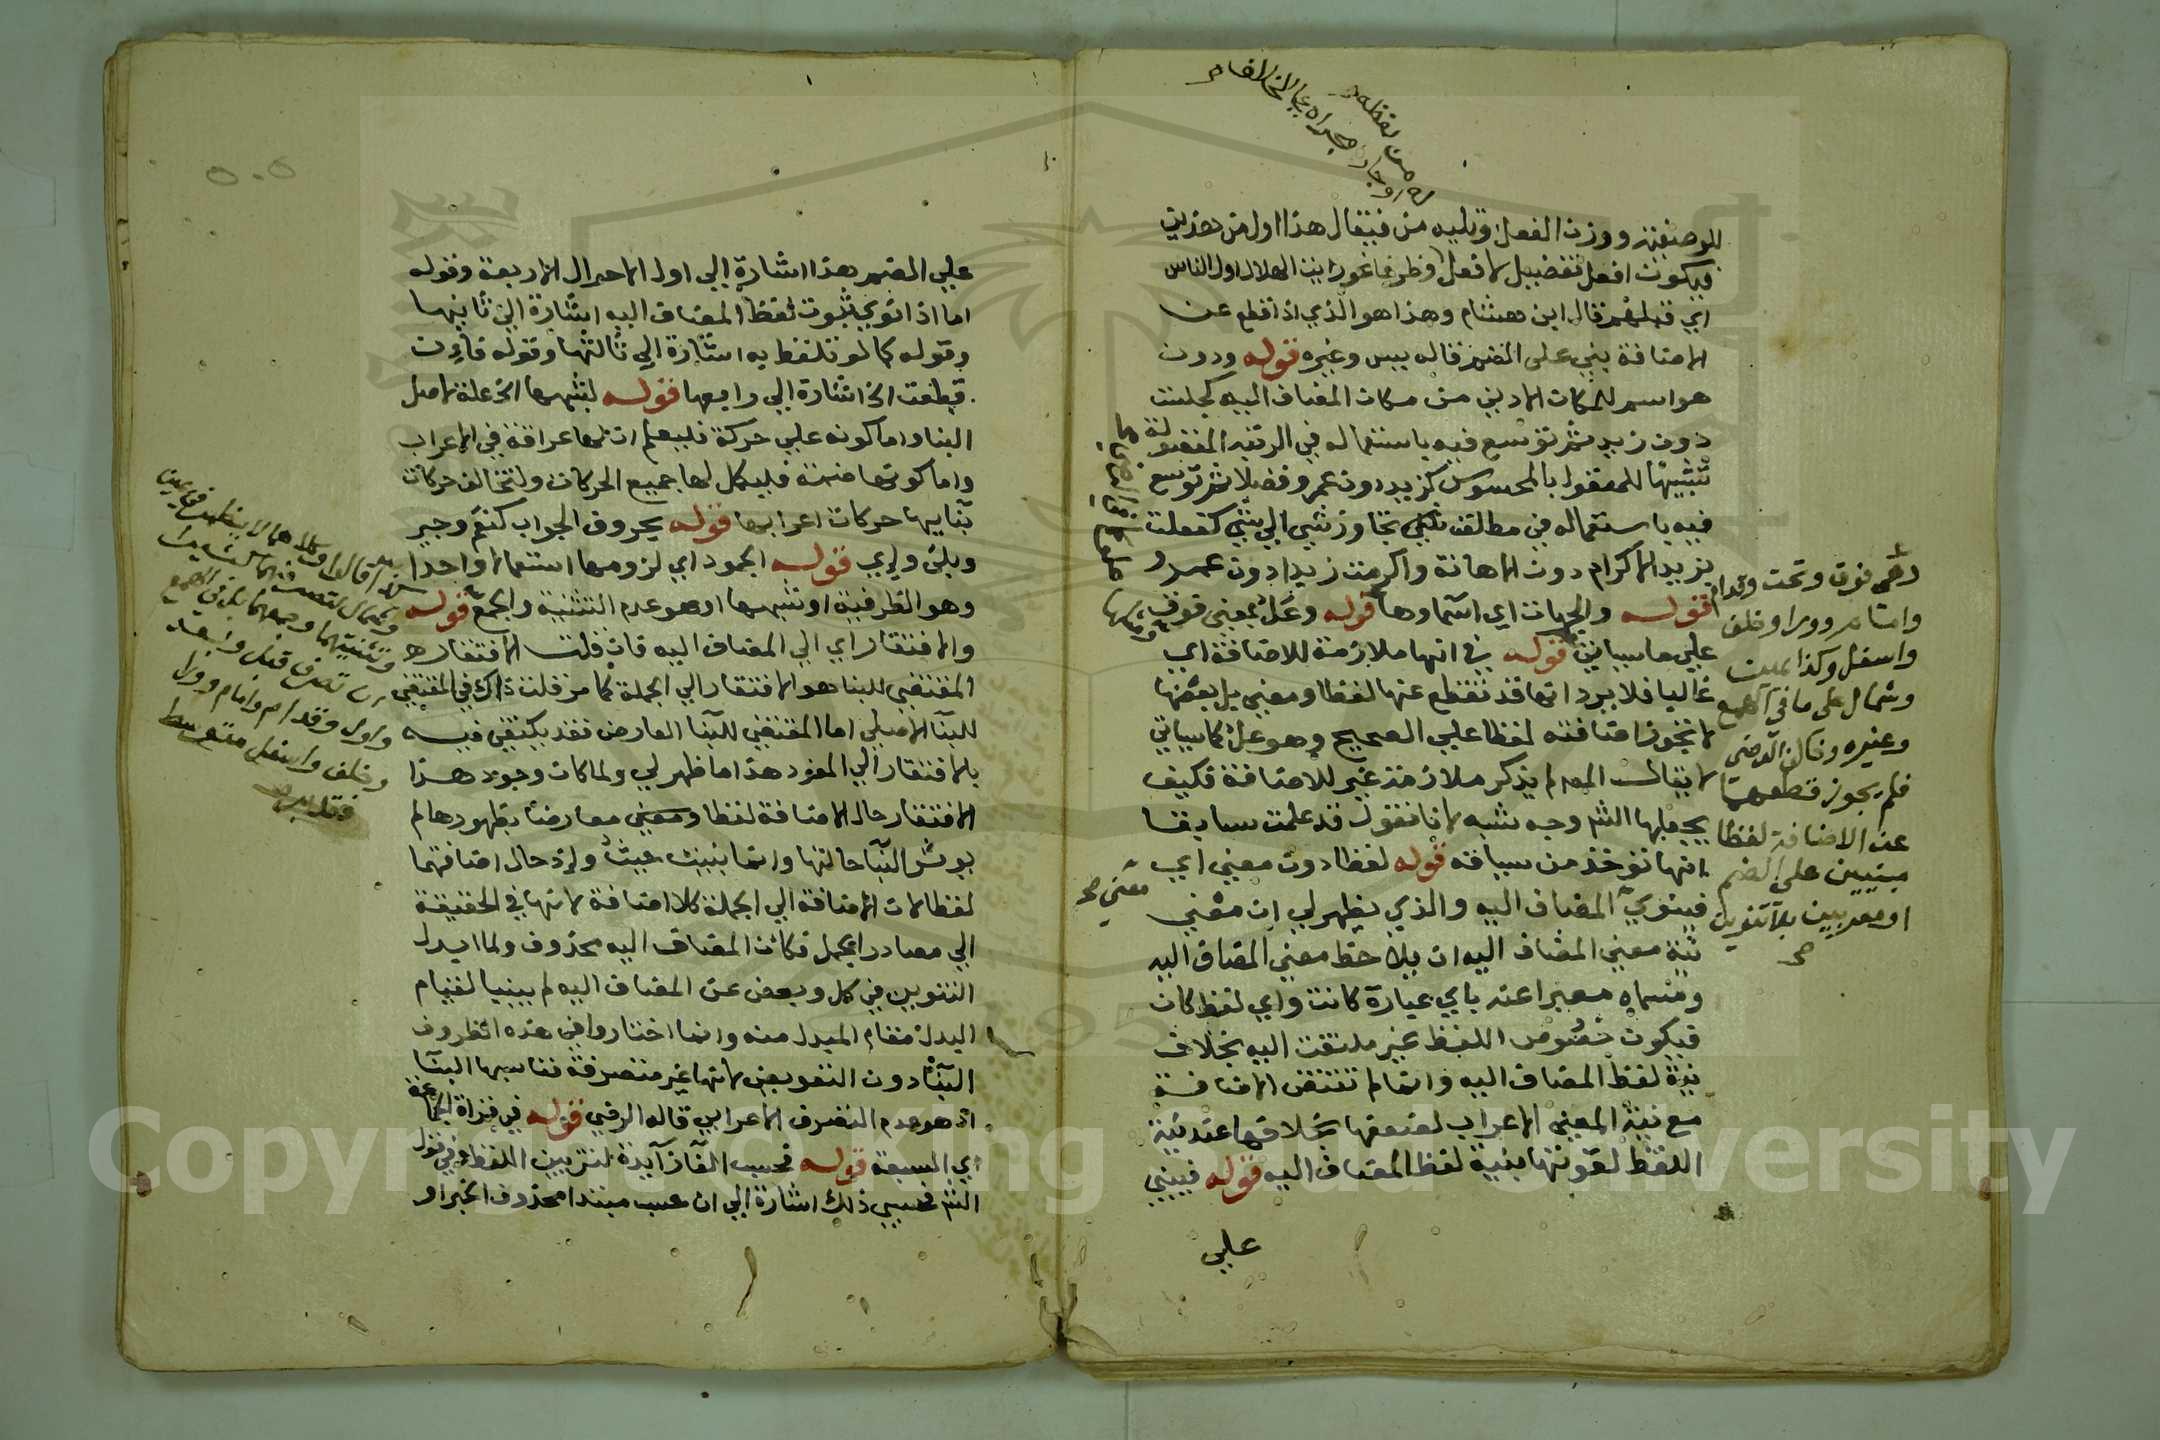 للوصفية ووزن الفعل وتليه من فيقال هذا اول من هذين
فيكون افعل تفضيل لا فعل له من لفظه وظرفا نحو رايت الهلال اول الناس
اي قبلهم قال ابن هشام وهذا هو الذي اذا قطع عن
الاضافة بني على الضم قاله يس وغيره قوله ودون
هو اسم للمكان الادنى من مكان المضاف اليه كجلست
دون زيد ثم توسع فيه باستعماله في الرتبة المفضولة
تشبيها للمعقول بالمحسوس كزيد دون عمرو فضلا ثم توسع
فيه باستعماله في مطلق تجاوز شي الى شي كفعلت
بزيد الاكرام دون الاهانة واكرمت زيدا دون عمرو
قوله والجهات اي اسماوها قوله وعل بمعنى فوق
على ما سياتي قوله في انها ملازمة للاضافة اي
غالبا فلا يرد انها قد تقطع عنها لفظا ومعنى بل بعضها
لا تجوز اضافته لفظا على الصحيح وهو عل كما سياتي
لا يقال المص لم يذكر ملازمة غير للاضافة فكيف
يجعلها الش وجه شبه لانا نقول قد علمت سابقا
انها تؤخذ من سياقه قوله لفظا دون معنى اي
فينوي المضاف اليه والذي يظهر لي ان معنى
نية معنى المضاف اليه ان يلاحظ معنى المضاف اليه
ومسماه معبرا عنه باي عبارة كانت واي لفظ كان
فيكون خصوص اللفظ غير ملتفت اليه بخلاف
نية لفظ المضاف اليه وانما لم تقتض الاضافة
مع نية المعنى الاعراب لضعفها بخلافها عند نية
اللفظ لقوتها بنية لفظ المضاف اليه قوله فيبنى
على
وهي فوق وتحت وقدام
وامام وورا وخلف
واسفل وكذا يمين
وشمال على ما في الهمع
وغيره وخالف الرضي
فلم يجوز قطعهما
عن الاضافة لفظا
مبنيين على الضم
او معربين بلا تنوين
صح
معنى صح
على الضم هذا اشارة الى اول الاحوال الاربعة وقوله
اما اذا نوي ثبوت لفظ المضاف اليه اشارة الى ثانيها
وقوله كما لو تلفظ به اشارة الى ثالثها وقوله فان
قطعت الخ اشارة الى رابعها قوله لشبهها الخ علة لاصل
البنا واما كونه على حركة فليعلم ان لها عراقة في الاعراب
واما كونها ضمة فليكمل لها جميع الحركات ولتخالف حركات
بنايها حركات اعرابها قوله بحروف الجواب كنعم وجير
وبلى واي قوله الجمود اي لزومها استعمالا واحدا
وهو الظرفية او شبهها او هو عدم التثنية والجمع قوله
والافتقار اي الى المضاف اليه فان قلت الافتقار
المقتضي للبنا هو الافتقار الى الجملة كما مر قلت ذاك في المقتضي
للبنا الاصلي اما المقتضي للبنا العارض فقد يكتفى فيه
بالافتقار الى المفرد هذا ما ظهر لي ولما كان وجود هذا
الافتقار حال الاضافة لفظا ومعنى معارضا بظهورها لم
يوثر البنا حالتها وانما بنيت حيث واذ حال اضافتهما
لفظا لان الاضافة الى الجملة كلا اضافة لانها في الحقيقة
الى مصادر الجمل فكان المضاف اليه محذوف ولما ابدل
التنوين في كل وبعض عن المضاف اليه لم يبنيا لقيام
البدل مقام المبدل منه وانما اختاروا في هذه الظروف
البنا دون التعويض لانها غير متصرفة فناسبها البنا
اذ هو عدم التصرف الاعرابي قاله الرضي قوله في قراة الجماعة
اي السبعة قوله فحسب الفا زايدة لتزيين اللفظ وفي قول
الش فحسبي ذلك اشارة الى ان حسب مبتدا محذوف الخبر او
وتثنيتهما وجمعهما
واول وقدام وامام وورا
وخلف واسفل متوسط
Copyright © King Saud University